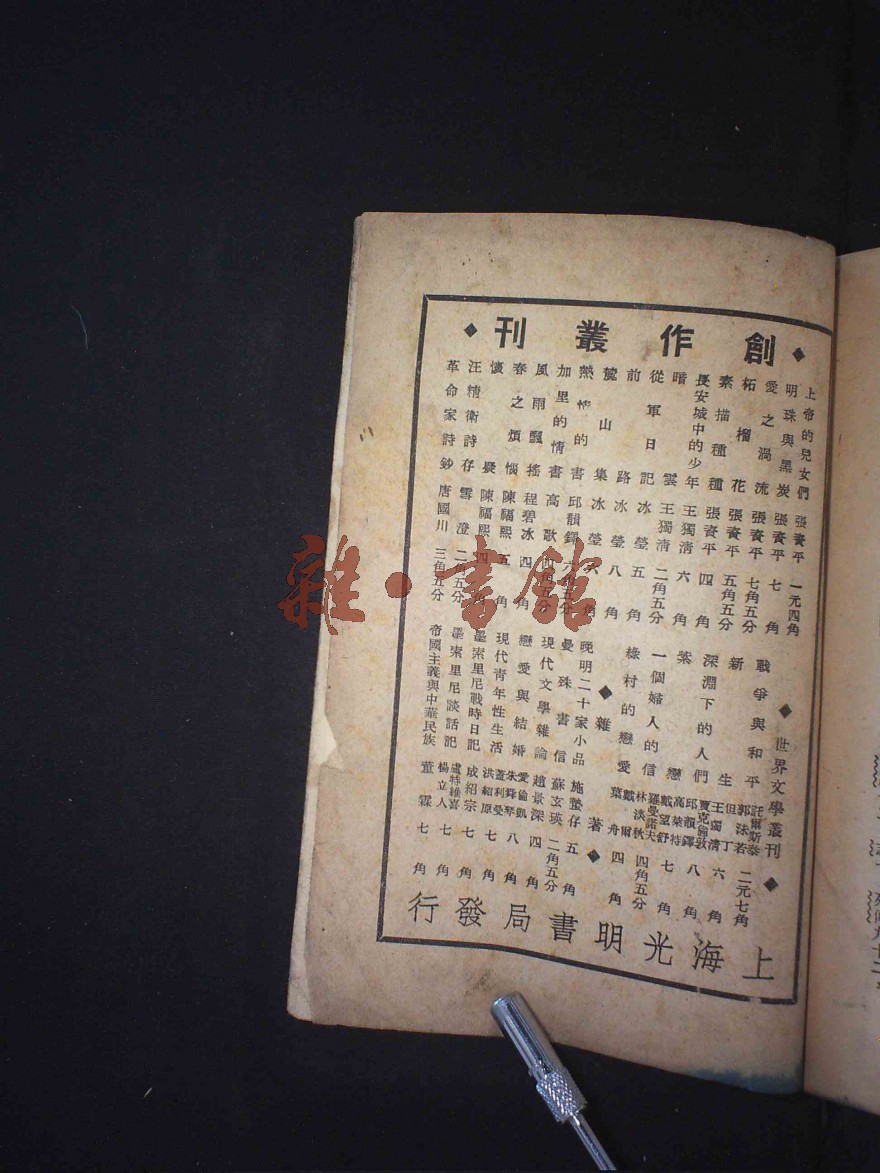 ◆創作叢刊◆
上帝的兒女們 張資平 一元四角
明珠與黑炭 張資平 七角
愛之渦流 張資平 七角五分
柘榴花 張資平 五角五分
素描種種 張資平 四角
長安城中的少年 王獨清 六角
暗雲 王獨清 二角五分
從軍日記 冰瑩 五角
前路 冰瑩 八角
麓山集 冰瑩 六角
熱情的書 邱韻鐸 六角五分
加里的情書 高歌 四角五分
風雨飄搖 程碧冰 四角
春之煩惱 陳福熙 五角
懷 陳福熙 四角
汪精衛詩存 雪澄 二角五分
革命家詩鈔 唐國川 三角五分
◆世界文學叢刊◆
戰爭與和平 託爾斯泰 郭沫若 二元七角
新生 但丁 王獨清 六角
深淵下的人們 賈克倫敦 邱韻鐸 八角
紫戀 高萊特 戴望舒 七角
一個婦人的信 羅曼諾夫 林淡秋 四角五分
綠村的戀愛 戴爾 葉舟 四角
◆雜著◆
晚明二十家小品 施蟄存 五角
曼殊書信 蘇玄瑛 二角五分
現代文學雜論 趙景深 四角
戀愛與結婚 愛倫凱 朱舜琴 八角
現代青年性生活 蓋利曼 洪紹原 七角
墨索里尼戰時日記 成紹宗 七角
墨索里尼談話記 盧特維喜 楊立人 七角
帝國主義與中華民族 董霖 七角
上海光明書局發行
雜·書館